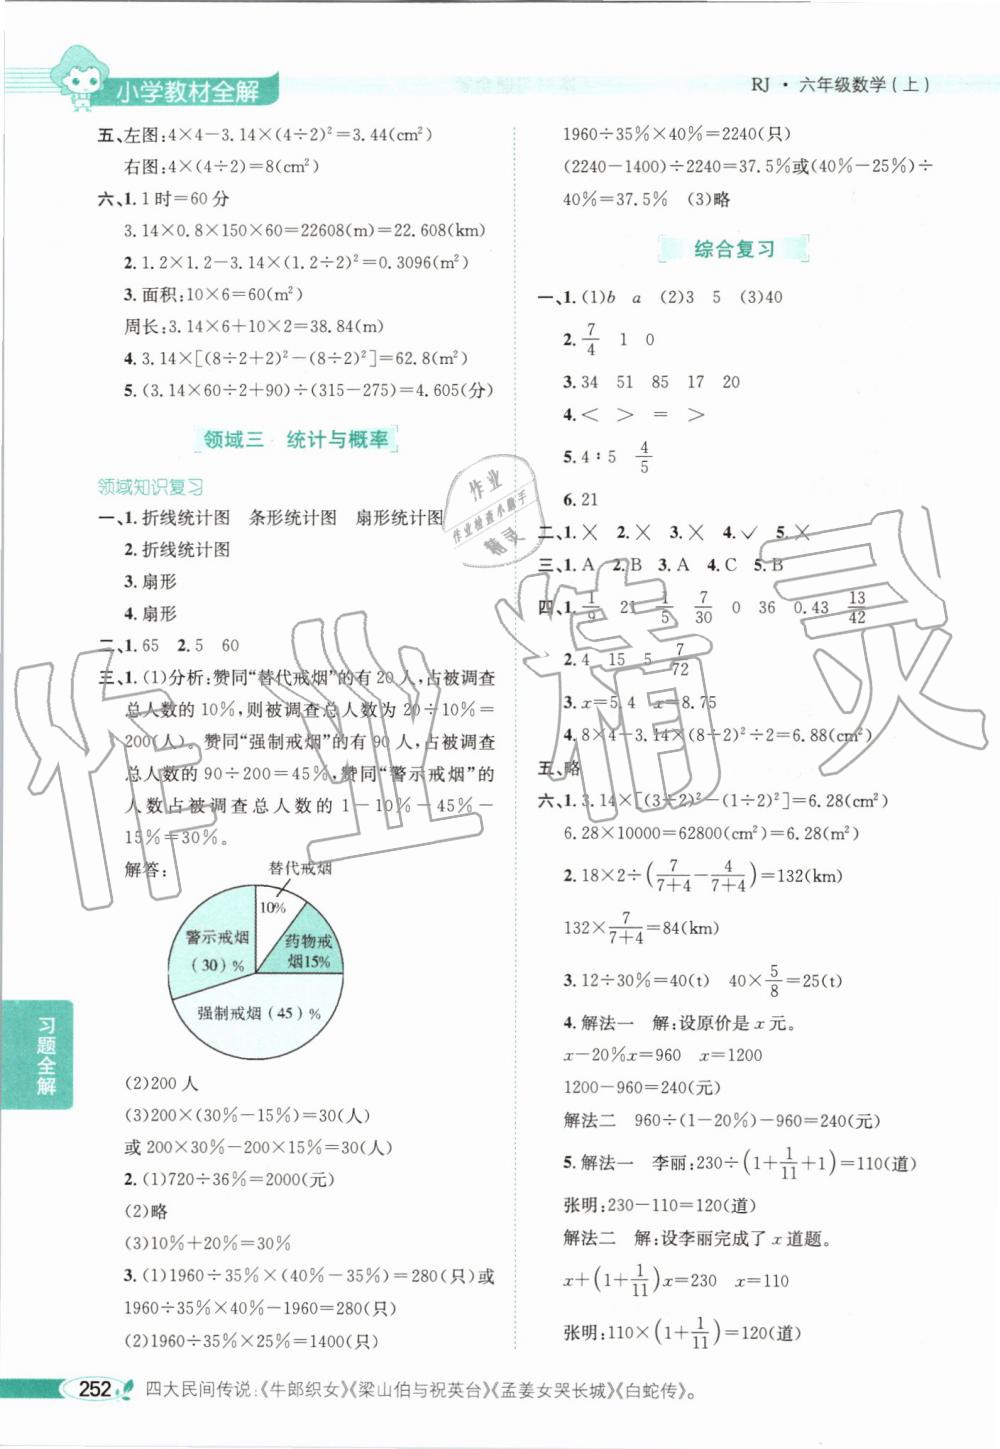 小学教材全解
RJ · 六年级数学(上)
五、左图:4×4−3.14×(4÷2)²=3.44(cm²)
右图:4×(4÷2)=8(cm²)
六、1. 1时=60分
3.14×0.8×150×60=22608(m)=22.608(km)
2. 1.2×1.2−3.14×(1.2÷2)²=0.3096(m²)
3. 面积:10×6=60(m²)
周长:3.14×6+10×2=38.84(m)
4. 3.14×[(8÷2+2)²−(8÷2)²]=62.8(m²)
5. (3.14×60÷2+90)÷(315−275)=4.605(分)
领域三 统计与概率
领域知识复习
一、1. 折线统计图 条形统计图 扇形统计图
2. 折线统计图
3. 扇形
4. 扇形
二、1. 65 2. 5 60
三、1. (1)分析:赞同“替代戒烟”的有20人,占被调查
总人数的10%,则被调查总人数为20÷10%=
200(人)。赞同“强制戒烟”的有90人,占被调查
总人数的90÷200=45%,赞同“警示戒烟”的
人数占被调查总人数的1−10%−45%−
15%=30%。
解答:
替代戒烟
10%
警示戒烟
(30)%
药物戒
烟15%
强制戒烟(45)%
(2)200人
(3)200×(30%−15%)=30(人)
或200×30%−200×15%=30(人)
2. (1)720÷36%=2000(元)
(2)略
(3)10%+20%=30%
3. (1)1960÷35%×(40%−35%)=280(只)或
1960÷35%×40%−1960=280(只)
(2)1960÷35%×25%=1400(只)
1960÷35%×40%=2240(只)
(2240−1400)÷2240=37.5%或(40%−25%)÷
40%=37.5% (3)略
综合复习
一、1. (1)b a (2)3 5 (3)40
2. 7/4 1 0
3. 34 51 85 17 20
4. < > = >
5. 4∶5 4/5
6. 21
二、1. × 2. × 3. × 4. ✓ 5. ×
三、1. A 2. B 3. A 4. C 5. B
四、1. 1/9 21 1/5 7/30 0 36 0.43 13/42
2. 4 15 5 7/72
3. x=5.4 x=8.75
4. 8×4−3.14×(8÷2)²÷2=6.88(cm²)
五、略
六、1. 3.14×[(3÷2)²−(1÷2)²]=6.28(cm²)
6.28×10000=62800(cm²)=6.28(m²)
2. 18×2÷(7/(7+4)−4/(7+4))=132(km)
132×7/(7+4)=84(km)
3. 12÷30%=40(t) 40×5/8=25(t)
4. 解法一 解:设原价是x元。
x−20%x=960 x=1200
1200−960=240(元)
解法二 960÷(1−20%)−960=240(元)
5. 解法一 李丽:230÷(1+1/11+1)=110(道)
张明:230−110=120(道)
解法二 解:设李丽完成了x道题。
x+(1+1/11)x=230 x=110
张明:110×(1+1/11)=120(道)
习题全解
252 四大民间传说:《牛郎织女》《梁山伯与祝英台》《孟姜女哭长城》《白蛇传》。
作业
作业检查小能手
精灵
作业精灵